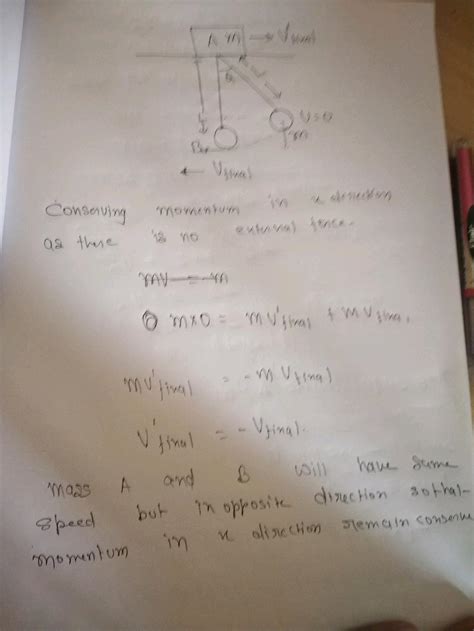 A m → Vfinal
θ
L
V=0
B m
m
← Vfinal
Conserving momentum in x direction
as there is no external force.
mv = m
m×0 = mV'final + mVfinal
mV'final = -mVfinal
V'final = -Vfinal.
mass A and B will have same
speed but in opposite direction so that
momentum in x direction remain conserve